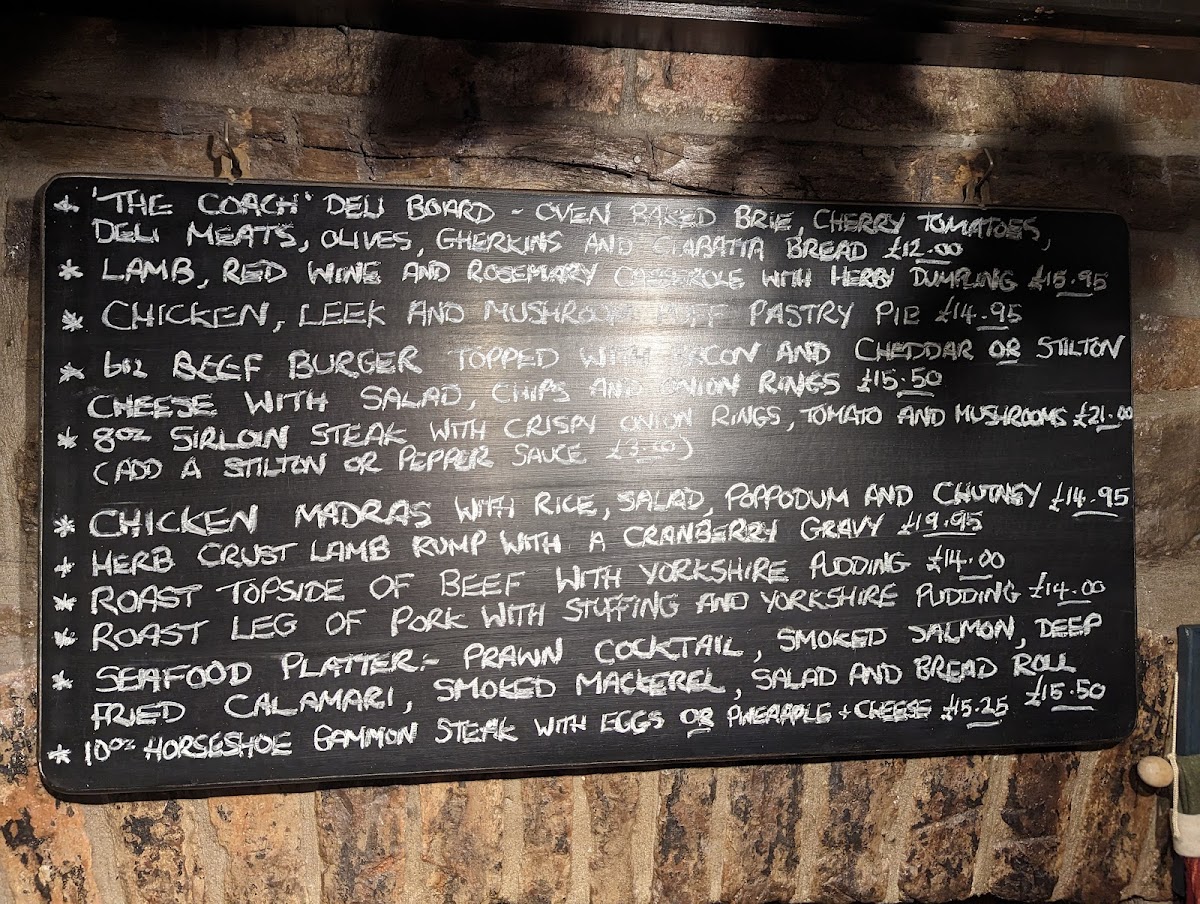 * 'THE COACH' DELI BOARD - OVEN BAKED BRIE, CHERRY TOMATOES,
DELI MEATS, OLIVES, GHERKINS AND CIABATTA BREAD £12.00
* LAMB, RED WINE AND ROSEMARY CASSEROLE WITH HERBY DUMPLING £15.95
* CHICKEN, LEEK AND MUSHROOM PUFF PASTRY PIE £14.95
* 6oz BEEF BURGER TOPPED WITH BACON AND CHEDDAR OR STILTON
CHEESE WITH SALAD, CHIPS AND ONION RINGS £15.50
* 8oz SIRLOIN STEAK WITH CRISPY ONION RINGS, TOMATO AND MUSHROOMS £21.00
(ADD A STILTON OR PEPPER SAUCE £3.00)
* CHICKEN MADRAS WITH RICE, SALAD, POPPODUM AND CHUTNEY £14.95
* HERB CRUST LAMB RUMP WITH A CRANBERRY GRAVY £19.95
* ROAST TOPSIDE OF BEEF WITH YORKSHIRE PUDDING £14.00
* ROAST LEG OF PORK WITH STUFFING AND YORKSHIRE PUDDING £14.00
* SEAFOOD PLATTER:- PRAWN COCKTAIL, SMOKED SALMON, DEEP
FRIED CALAMARI, SMOKED MACKEREL, SALAD AND BREAD ROLL £15.50
* 10oz HORSESHOE GAMMON STEAK WITH EGGS OR PINEAPPLE + CHEESE £15.25